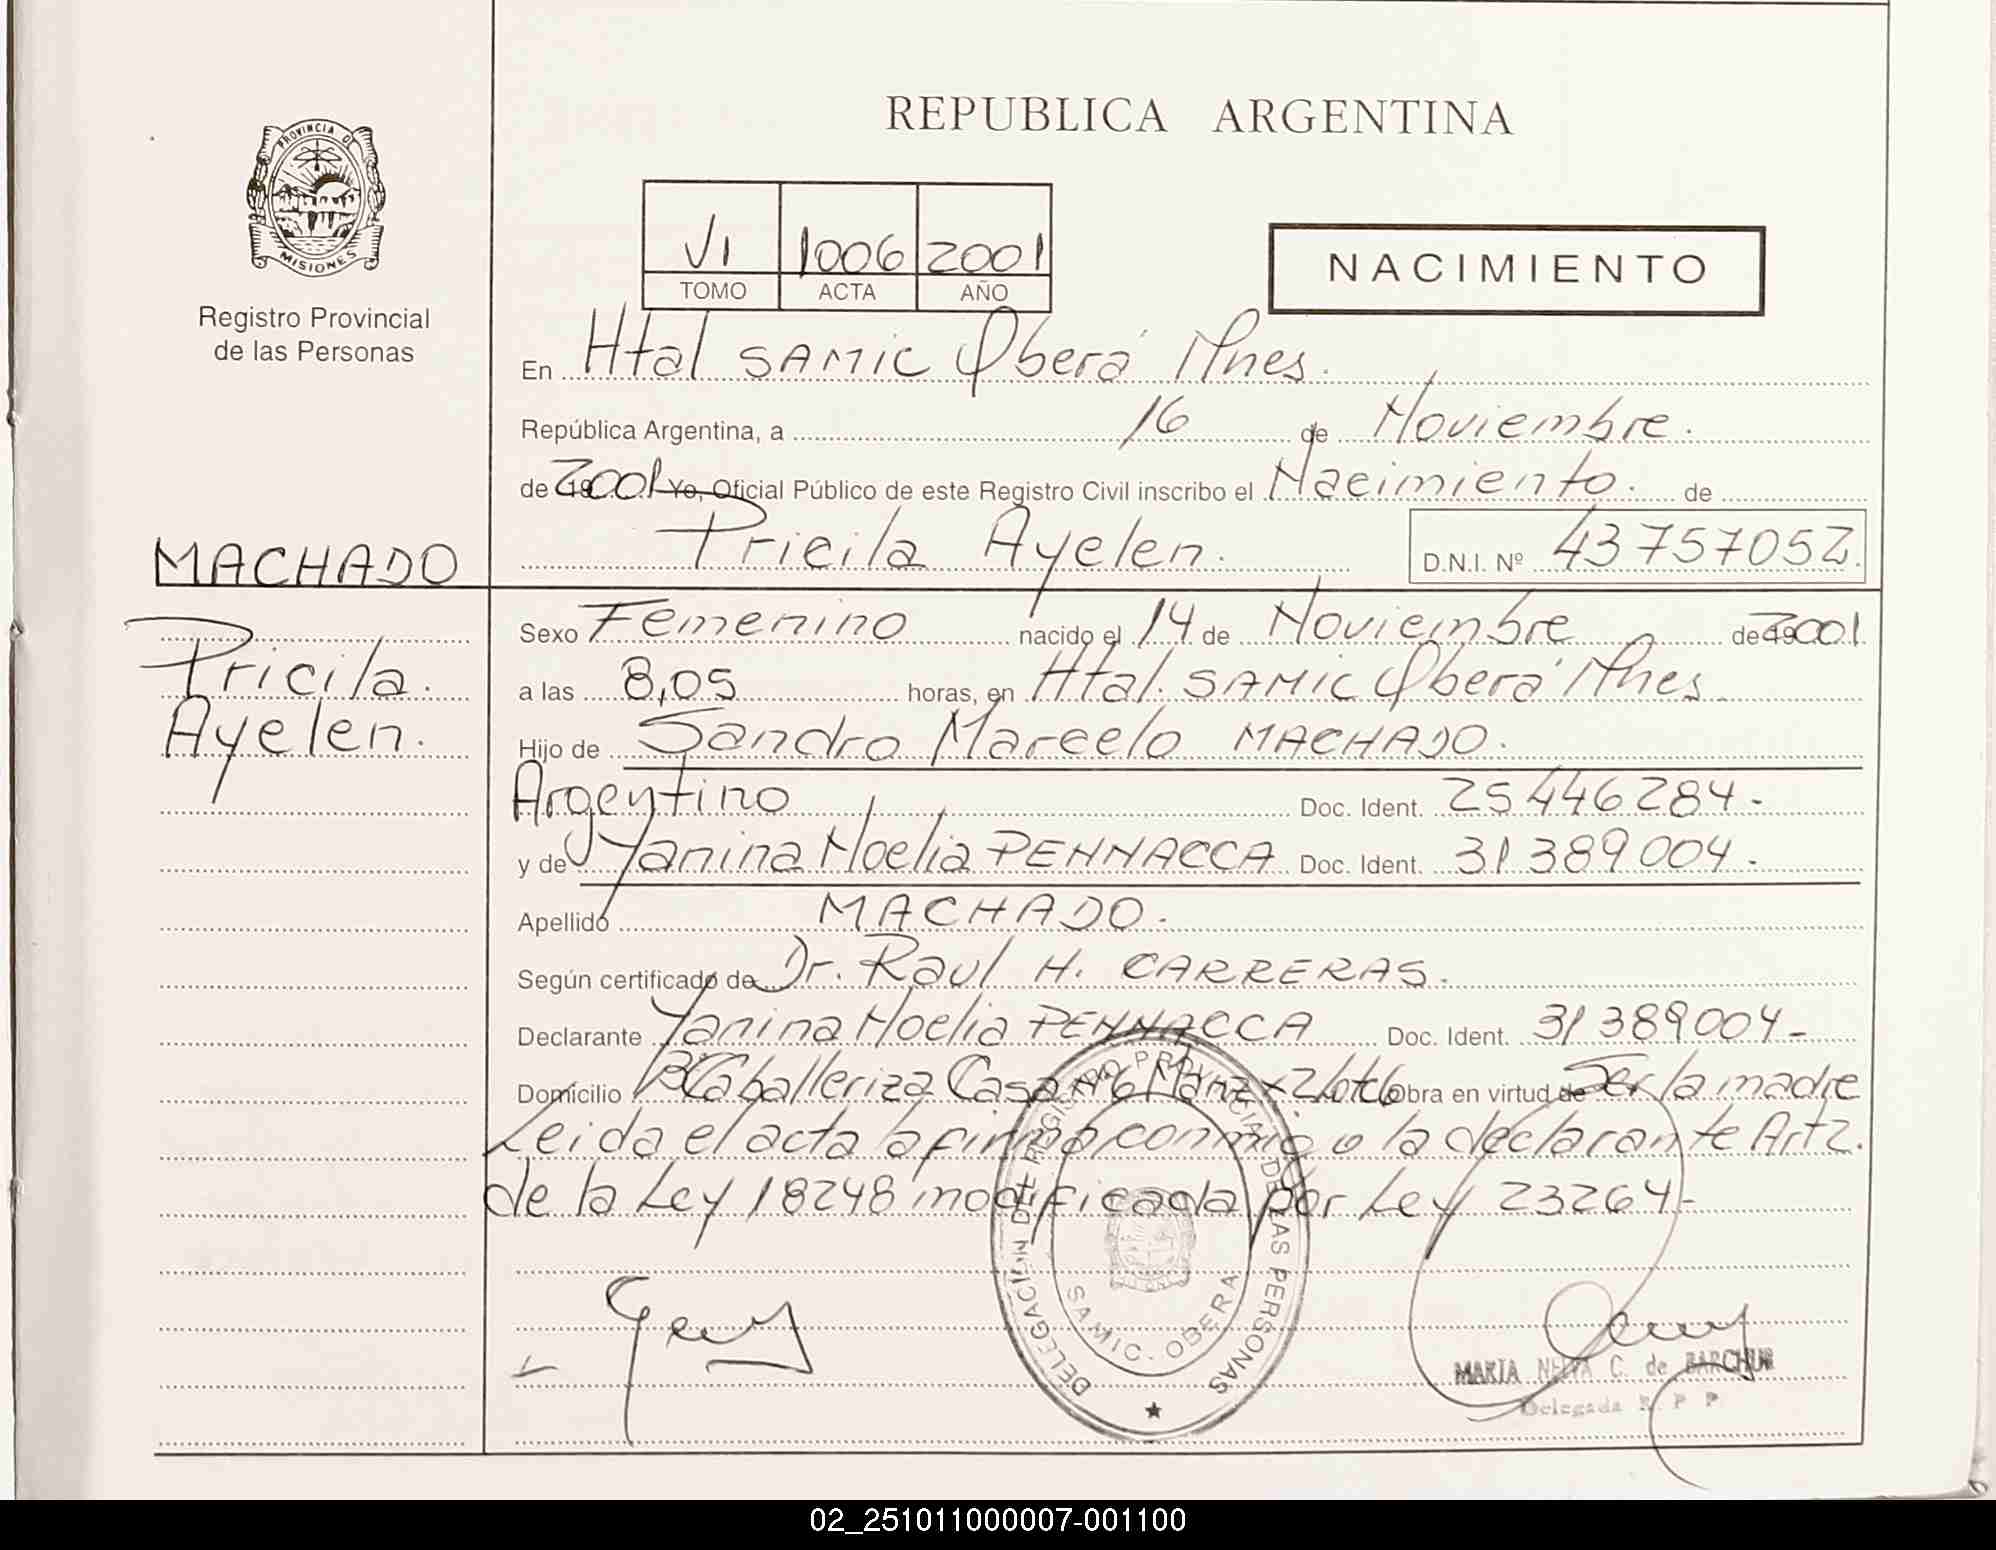 REPUBLICA ARGENTINA
PROVINCIA DE
MISIONES
Registro Provincial
de las Personas
VI 1006 2001
TOMO ACTA AÑO
NACIMIENTO
En Htal SAMIC Oberá Mnes.
República Argentina, a 16 de Noviembre.
de 2001 Yo, Oficial Público de este Registro Civil inscribo el Nacimiento. de
Pricila Ayelen. D.N.I. Nº 43757052.
MACHADO
Pricila.
Ayelen.
Sexo Femenino nacido el 14 de Noviembre de 2001
a las 8,05 horas, en Htal. SAMIC Oberá Mnes
Hijo de Sandro Marcelo MACHADO.
Argentino Doc. Ident. 25446284-
y de Yanina Noelia PENNACCA Doc. Ident. 31389004-
Apellido MACHADO.
Según certificado de Dr. Raul H. CARRERAS.
Declarante Yanina Noelia PENNACCA Doc. Ident. 31389004-
Domicilio Bº Caballeriza Casa Nº 6 Manz Obra en virtud de Ser la madre
Leida el acta la firma conmigo la declarante Art 2.
de la Ley 18248 modificada por Ley 23264-
DELEGACION DEL REGISTRO PROVINCIAL DE LAS PERSONAS
SAMIC - OBERA
MARIA C. de BARCHUK
Delegada R. P P
02_251011000007-001100